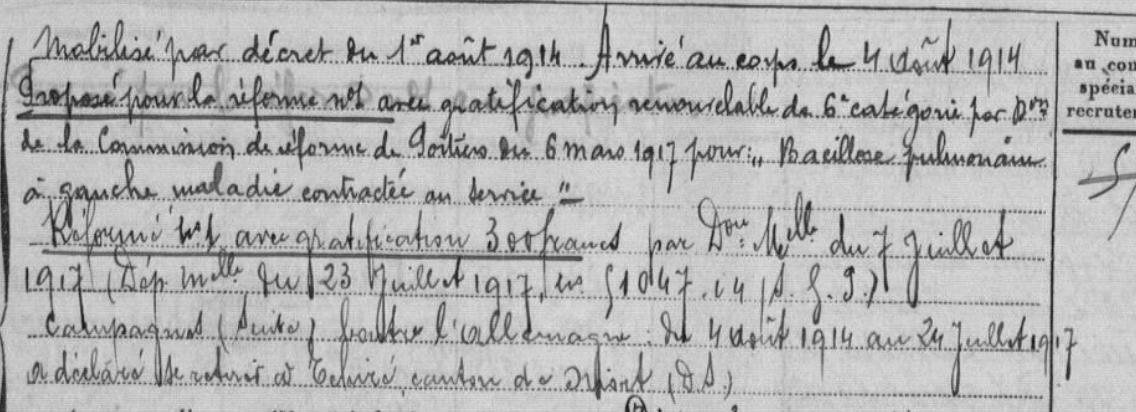 Mobilisé par décret du 1er août 1914. Arrivé au corps le 4 Août 1914
Proposé pour la réforme n°1 avec gratification renouvelable de 6e catégorie par Don
de la Commission de réforme de Poitiers du 6 mars 1917 pour : " Bacillose pulmonaire
à gauche maladie contractée au service "
Réformé n°1 avec gratification 300 francs par Don Melle du 7 Juillet
1917 (Dép. Melle du 23 Juillet 1917, n° 51047. c4 /S. G. P.)
Campagnes (Suite) Contre l'Allemagne : du 4 Août 1914 au 24 Juillet 1917
A déclaré se retirer à Echiré canton de Niort (D.S.)
Num
au con
spécia
recrute